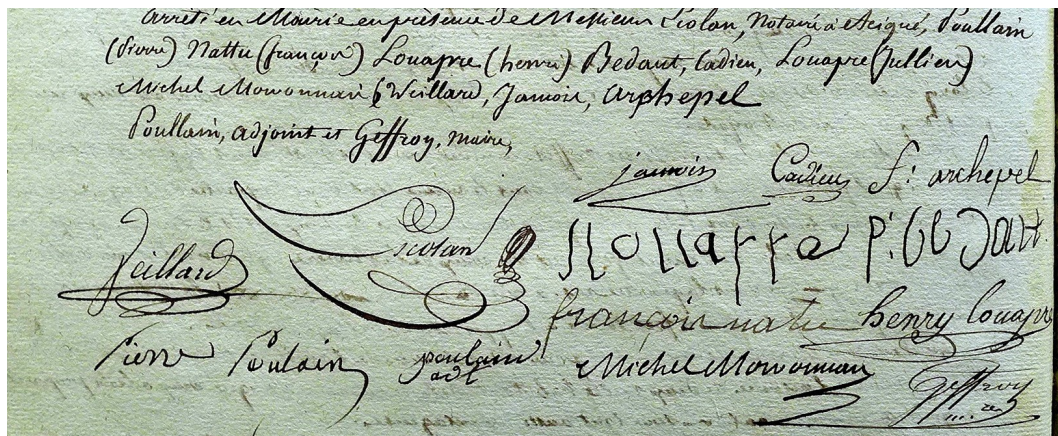 arrêté en Mairie en présence de Messieurs Scolan, Notaire à Acigné, Poullain
(Pierre) Nattu (françois) Louapre (henri) Bedaut, Cadieu, Louapre (Jullien)
Michel Morvonnan Weillard, Jamois, arphepel
Poullain, adjoint et Geffroy, maire,
jamois Cadieu f: archepel
Veillard Scolan
J louapre P: Bedaut
françois natu henry louapre
Pierre Poulain poulain adt Michel Morvonnan Geffroy